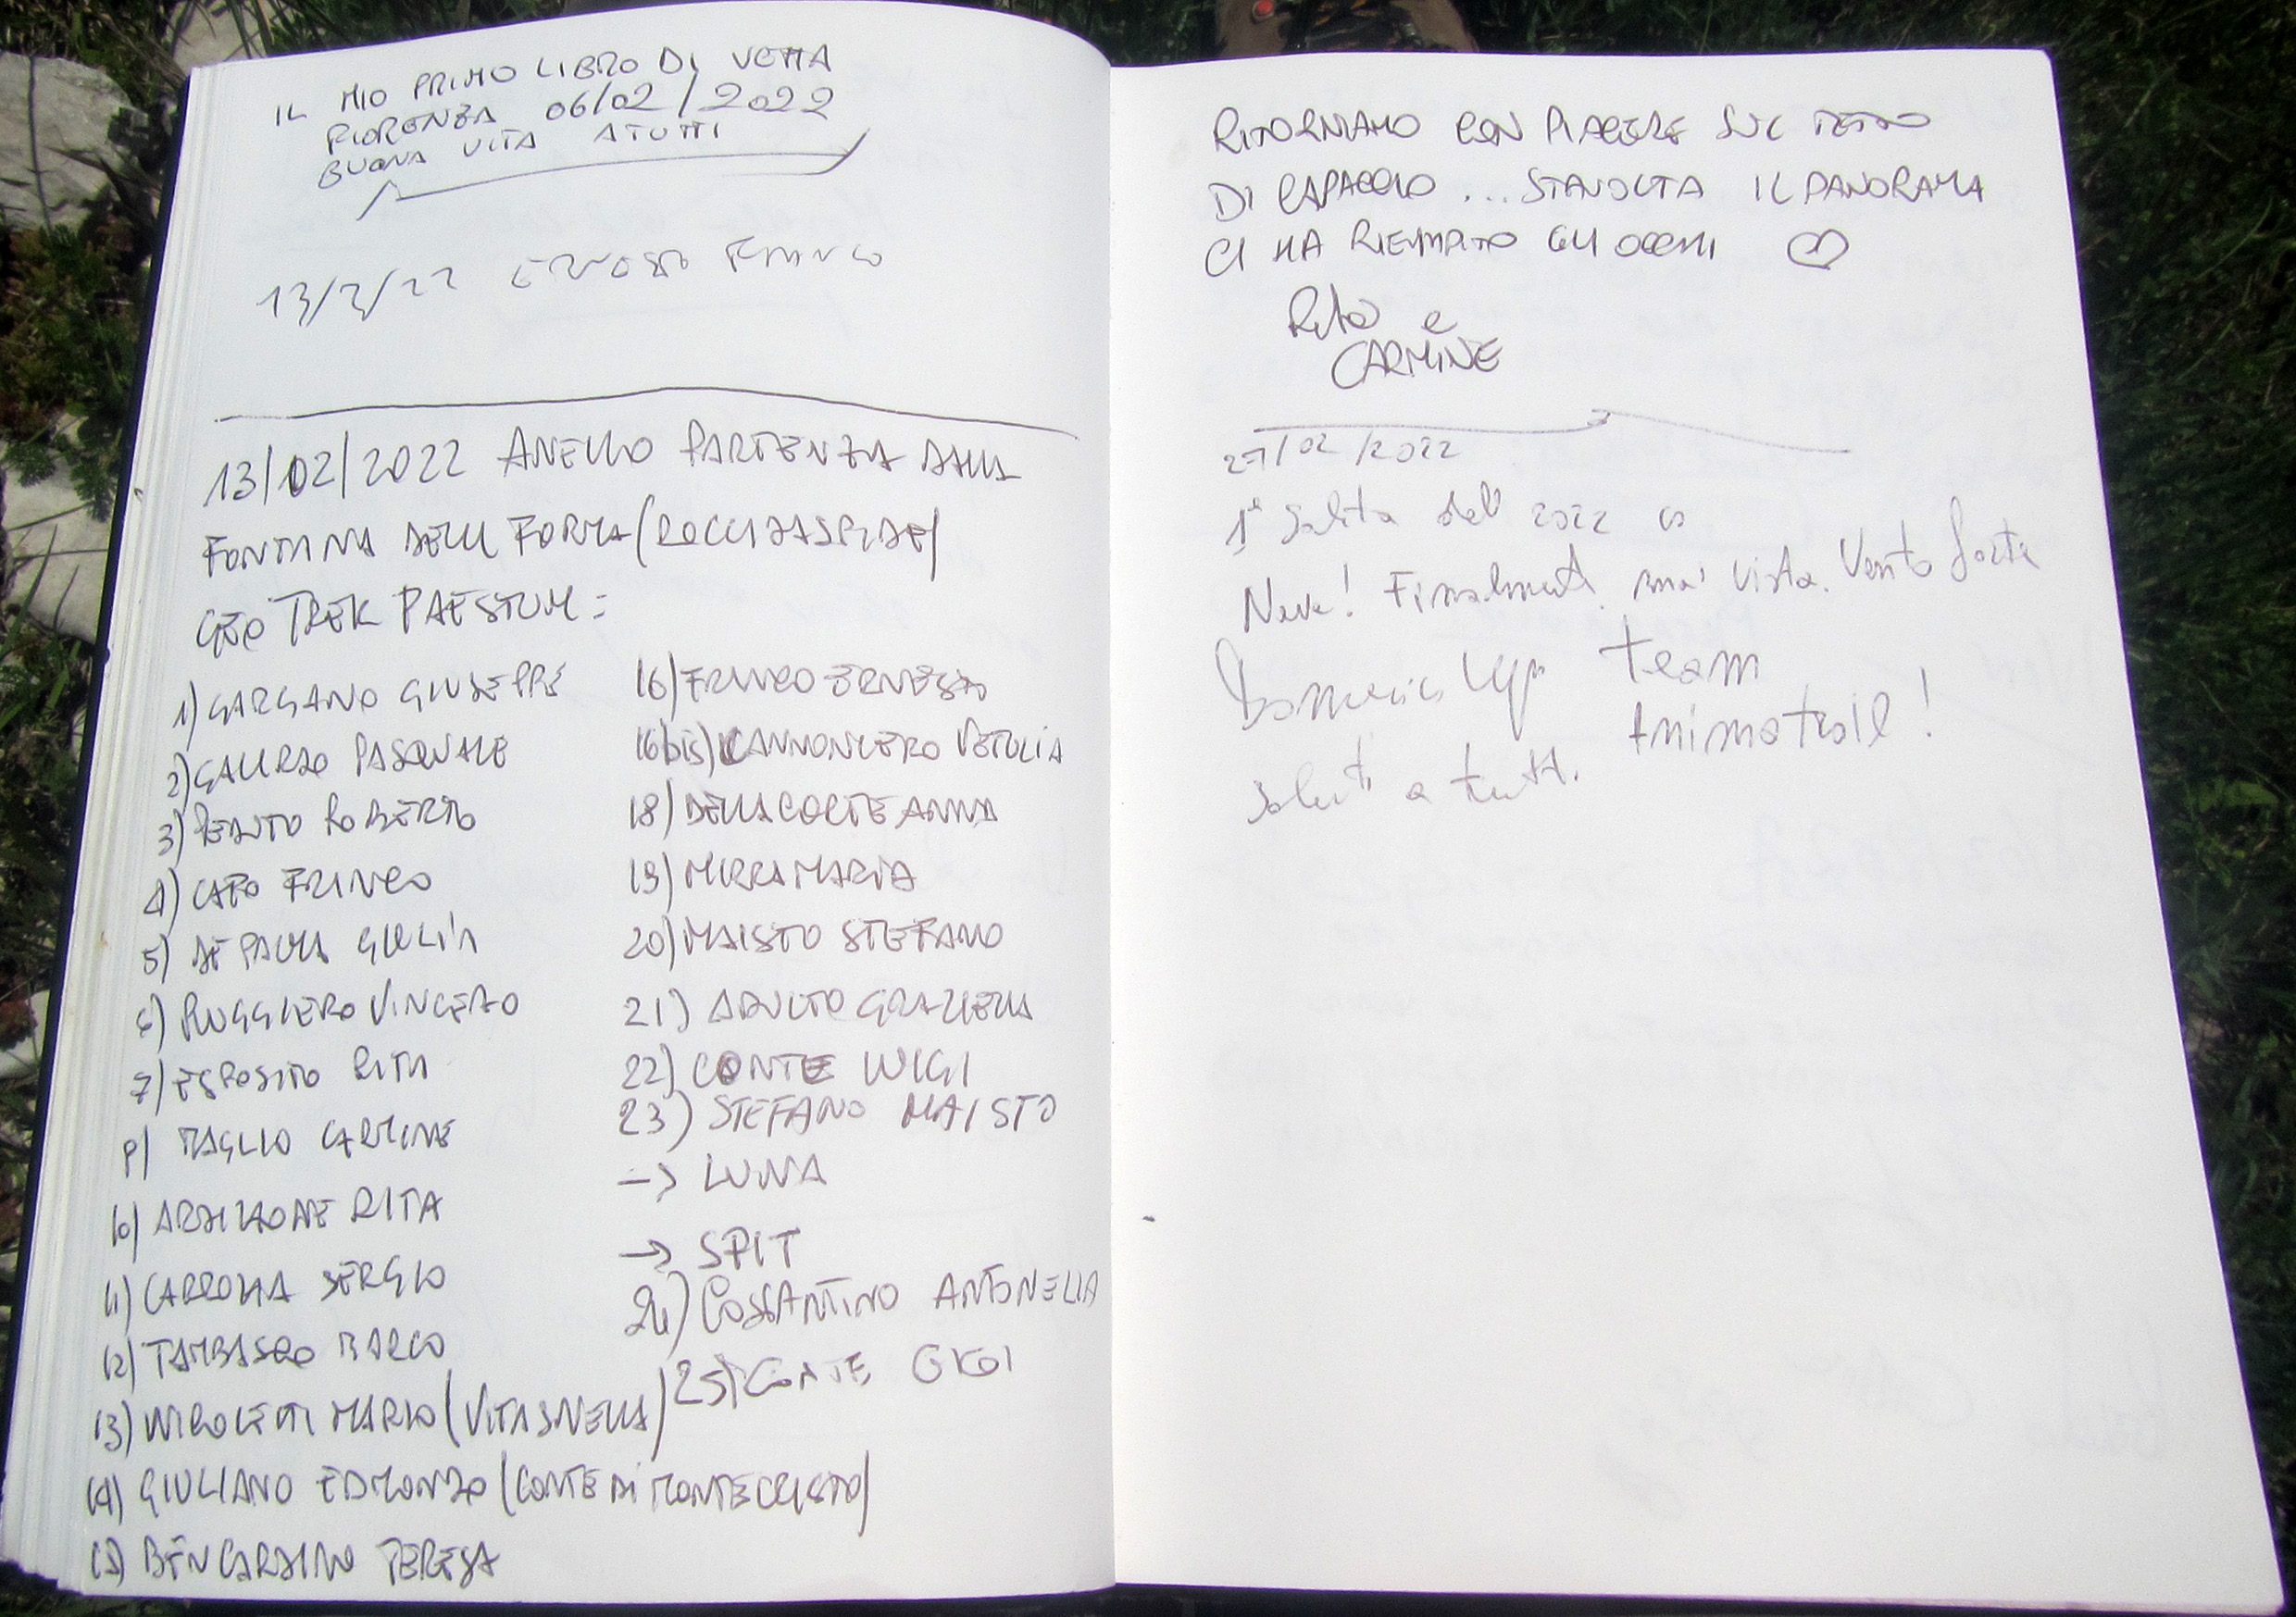 IL MIO PRIMO LIBRO DI VETTA
FIORENZA 06/02/2022
BUONA VITA A TUTTI
13/2/22 FRANCO
13/02/2022 ANELLO PARTENZA DALLA
FONTANA DELLA FORMA (ROCCADASPIDE)
GEO TREK PAESTUM =
1) GARGANO GIUSEPPE
2) GALLRDO PASQUALE
3) ROBERTO
4) CAPO FRANCO
5) DE PAOLA GIULIA
6) RUGGIERO VINCENZO
7) ESPOSITO RITA
8) TAGLIO CARMINE
10) ARDIZZONE RITA
11) CARROZZA SERGIO
12) TAMBASCO MARCO
13) NICOLETTI MARIO (VITASNELLA)
14) GIULIANO EDMONDO (CONTE DI MONTECRISTO)
15) BENCARDINO TERESA
16) FRANCO ERNESTO
16bis) CANNONIERO VETULIA
18) DELLA CORTE ANNA
19) MIRRA MARIA
20) MAISTO STEFANO
21) ADULTO GRAZIELLA
22) CONTE LUIGI
23) STEFANO MAISTO
→ LUNA
→ SPIT
24) COSSANTINO ANTONELLA
25) CONTE
RITORNIAMO CON PIACERE SUL TETTO
DI CAPACCIO ... STAVOLTA IL PANORAMA
CI HA RIEMPITO GLI OCCHI ♡
Rita e
CARMINE
27/02/2022
1ª Salita del 2022 con
Neve! Finalmente una vista. Vento forte
Domenico team
Animatrail!
Saluti a tutti.